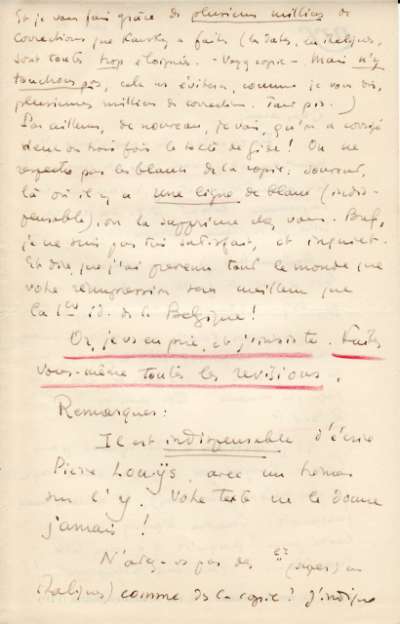 Et je vous fais grâce de plusieurs milliers de
corrections que Kansky a faites (les dates, en italiques,
sont toutes trop éloignées. - Voyez copie -. Mais n'y
touchons pas, cela ns évitera, comme je vous dis,
plusieurs milliers de corrections. Tant pis.)
Par ailleurs, de nouveau, je vois, qu'on a corrigé
deux ou trois fois le texte de Gide! On ne
respecte pas les blancs de la copie: souvent,
là où il y a une ligne de blanc (indis-
pensable), on la supprime chez vous. Bref,
je ne suis pas très satisfait, et inquiet.
Et dire que j'ai prévenu tout le monde que
votre réimpression sera meilleure que
la 1ère éd. de la Belgique!
Or, je vs en prie, et j'insiste. Faites
vous-même toutes les revisions.
Remarques:
Il est indispensable d'écrire
Pierre Louÿs, avec un tréma
sur l'y. Votre texte ne le donne
jamais!
N'avez-vs pas des (sages) en
italiques) comme ds la copie? J'indique